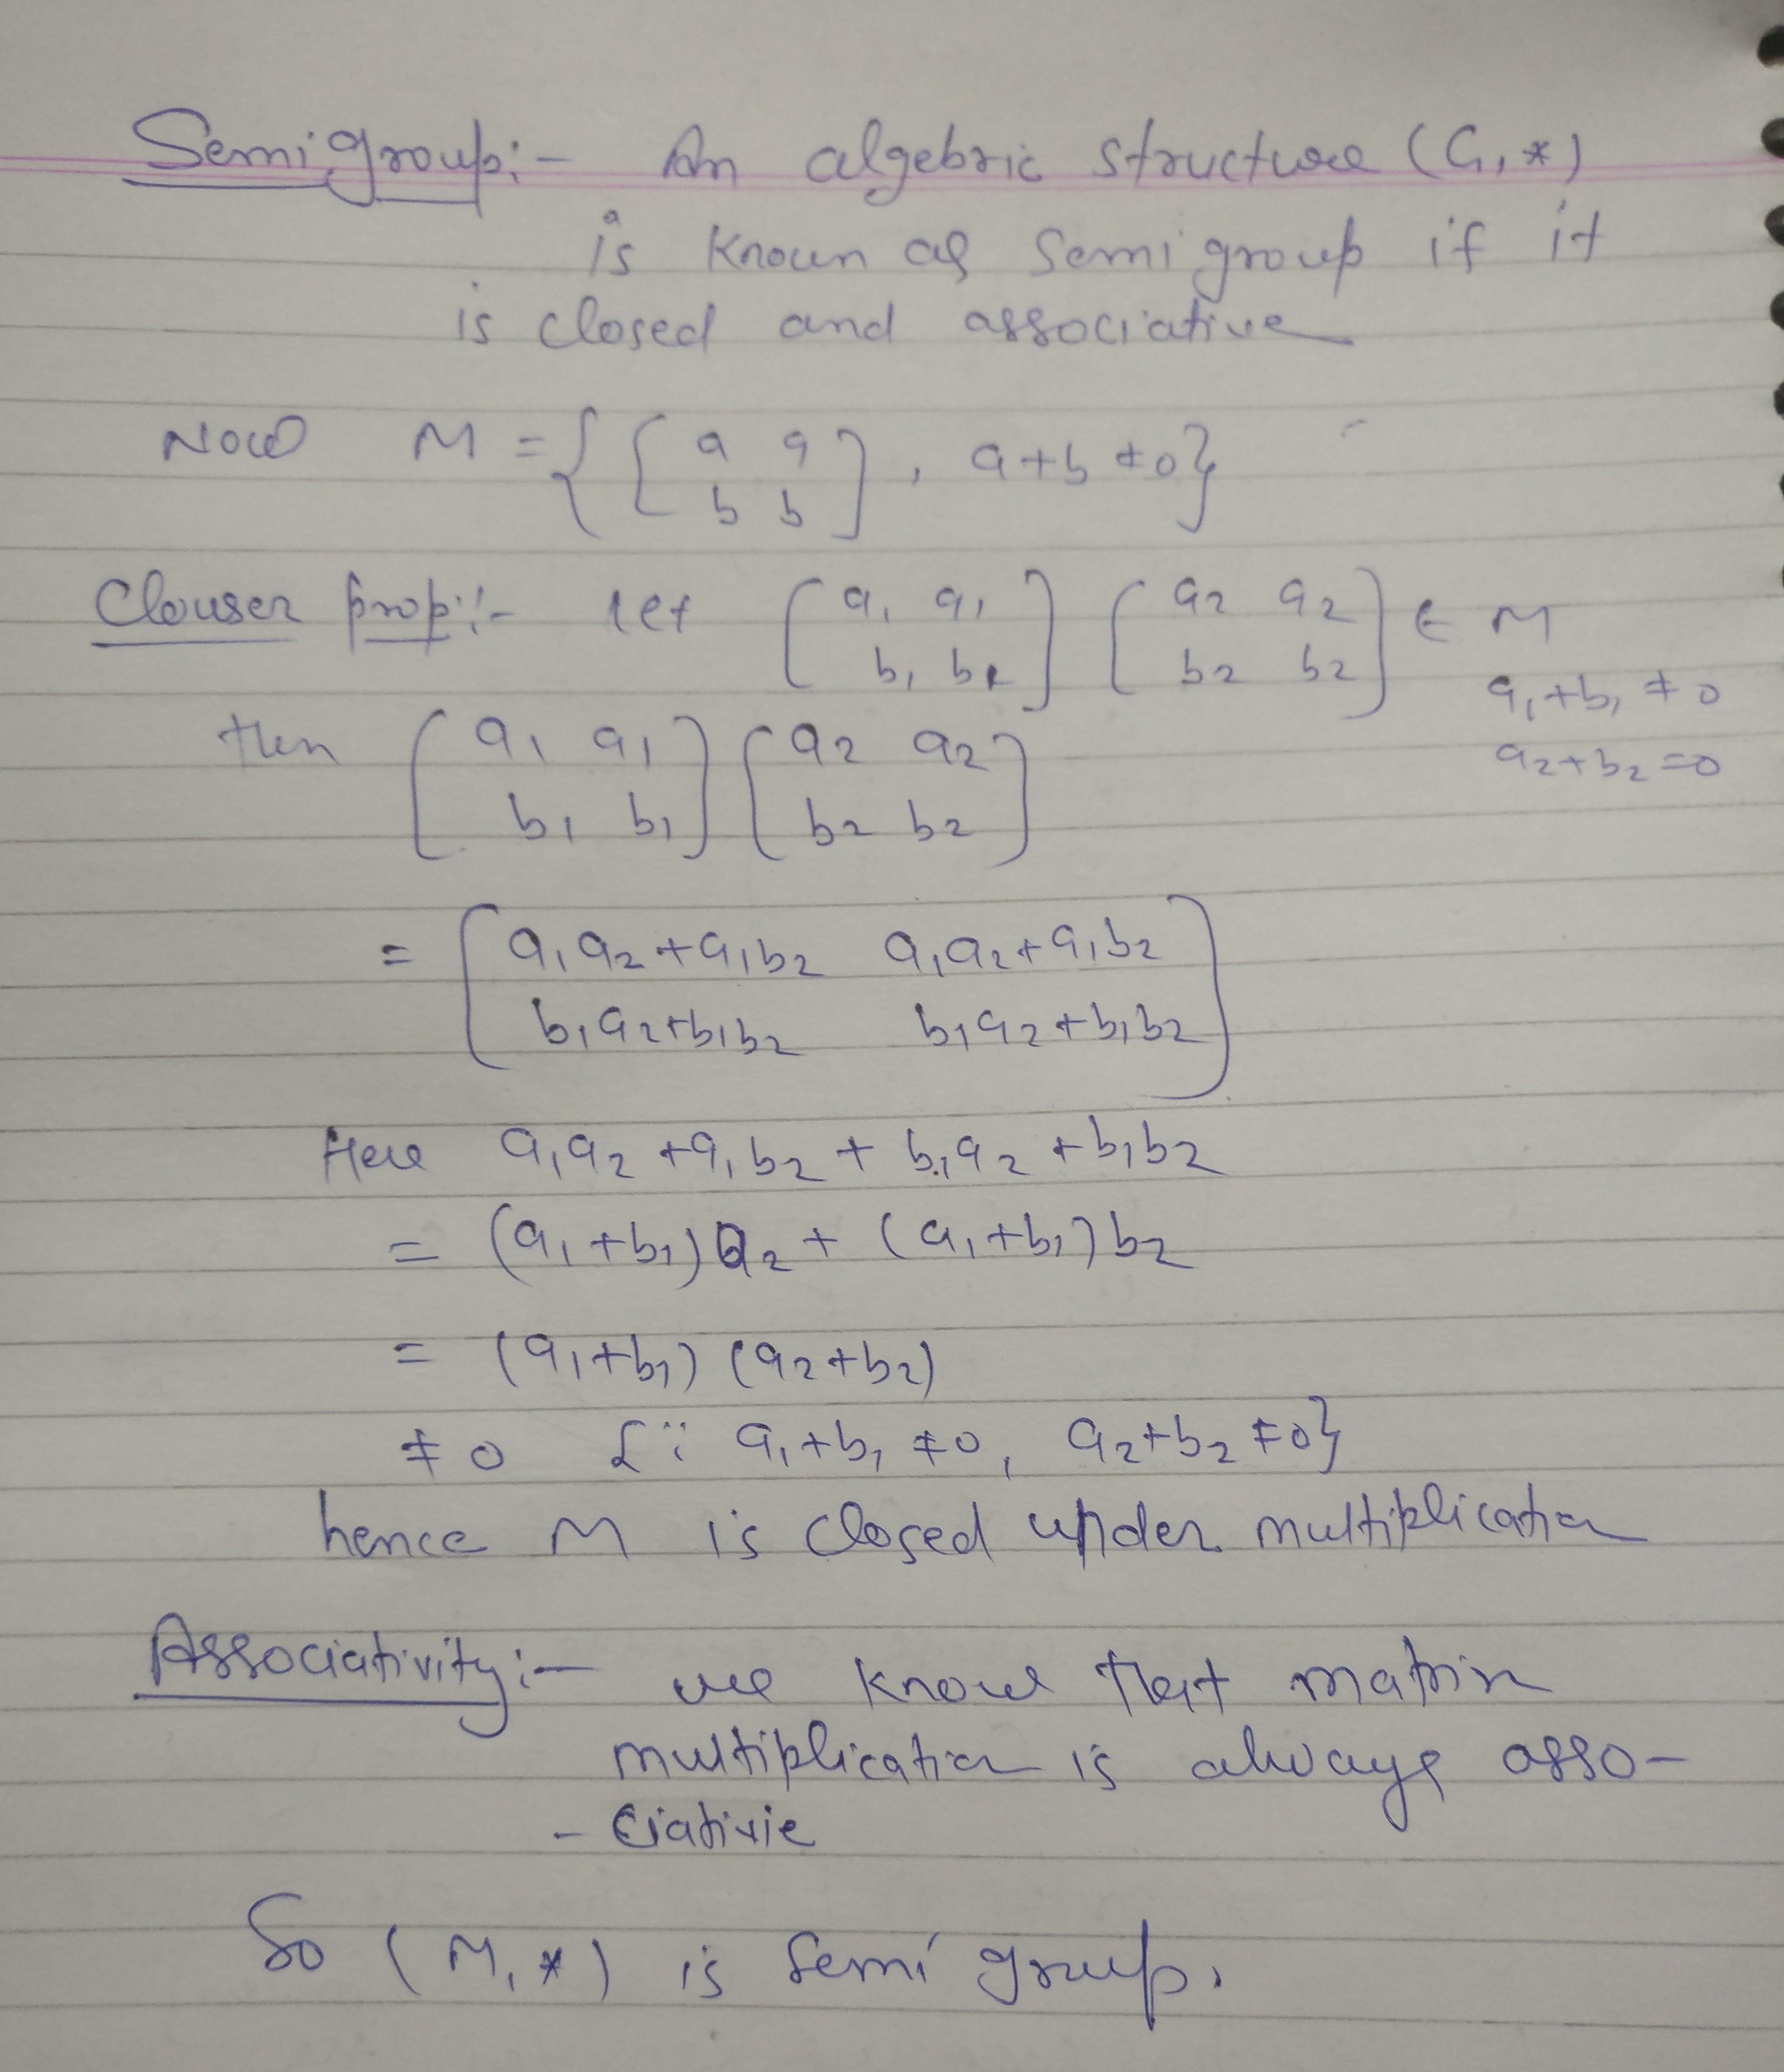 Semi group:- An algebric structure (G, *)
is known as Semi group if it
is closed and associative
Now M = { [ a a
b b ] , a+b ≠ 0 }
Clouser prop:- let [ a₁ a₁ [ a₂ a₂ ∈ M
b₁ b₁ ] b₂ b₂ ] a₁+b₁ ≠ 0
then [ a₁ a₁ [ a₂ a₂ a₂+b₂ = 0
b₁ b₁ ] b₂ b₂ ]
= [ a₁a₂+a₁b₂ a₁a₂+a₁b₂
b₁a₂+b₁b₂ b₁a₂+b₁b₂ ]
Here a₁a₂ + a₁b₂ + b₁a₂ + b₁b₂
= (a₁+b₁)a₂ + (a₁+b₁)b₂
= (a₁+b₁) (a₂+b₂)
≠ 0 {∵ a₁+b₁ ≠ 0, a₂+b₂ ≠ 0}
hence M is closed under multiplication
Associativity:- we know that matrix
multiplication is always asso-
- ciativie
So (M, *) is semi group.